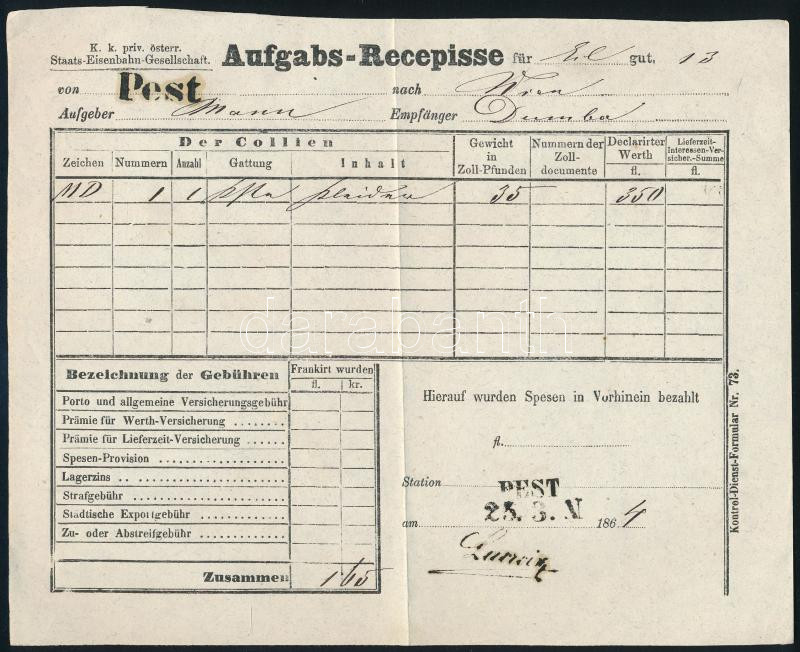 K. k. priv. österr.
Staats-Eisenbahn-Gesellschaft.
Aufgabs-Recepisse für Eil gut, 13
von Post nach Wien
Aufgeber Mann Empfänger Dumba
Der Collien
Zeichen Nummern Anzahl Gattung Inhalt Gewicht in Zoll-Pfunden Nummern der Zoll-documente Declarirter Werth fl. Lieferzeit-Interessen-Versicher.-Summe fl.
MD 1 1 Kste Kleider 35 350
darabanth
Bezeichnung der Gebühren Frankirt wurden
fl. kr.
Porto und allgemeine Versicherungsgebühr
Prämie für Werth-Versicherung
Prämie für Lieferzeit-Versicherung
Spesen-Provision
Lagerzins
Strafgebühr
Städtische Expoitgebühr
Zu- oder Abstreifgebühr
Zusammen 1 65
Hierauf wurden Spesen in Vorhinein bezahlt
fl.
Station PEST
am 25. 3. N 1864
Kontrol-Dienst-Formular Nr. 73.